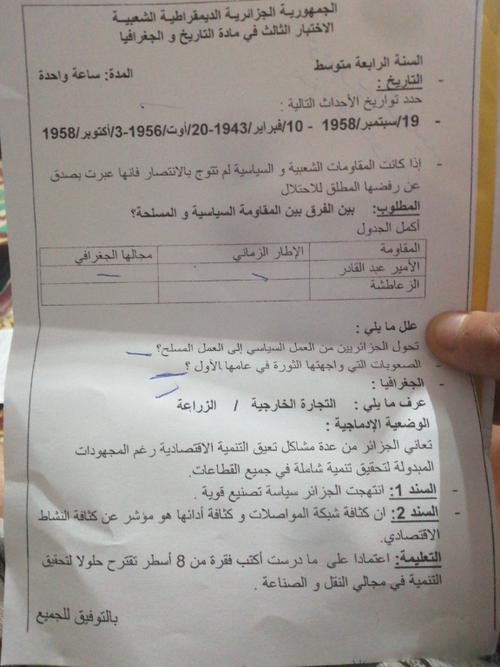 الجمهورية الجزائرية الديمقراطية الشعبية
الاختبار الثالث في مادة التاريخ و الجغرافيا
السنة الرابعة متوسط المدة: ساعة واحدة
- التاريخ :
حدد تواريخ الأحداث التالية :
19/سبتمبر/1958 - 10/فبراير/1943-20/أوت/1956-3/أكتوبر/1958
- إذا كانت المقاومات الشعبية و السياسية لم تتوج بالانتصار فانها عبرت بصدق
عن رفضها المطلق للاحتلال
المطلوب: بين الفرق بين المقاومة السياسية و المسلحة؟
أكمل الجدول
المقاومة الإطار الزماني مجالها الجغرافي
الأمير عبد القادر
الزعاطشة
علل ما يلي :
- تحول الجزائريين من العمل السياسي إلى العمل المسلح؟
- الصعوبات التي واجهتها الثورة في عامها الأول ؟
- الجغرافيا :
عرف ما يلي : التجارة الخارجية / الزراعة
الوضعية الإدماجية :
تعاني الجزائر من عدة مشاكل تعيق التنمية الاقتصادية رغم المجهودات
المبدولة لتحقيق تنمية شاملة في جميع القطاعات.
- السند 1: انتهجت الجزائر سياسة تصنيع قوية .
- السند 2: ان كثافة شبكة المواصلات و كثافة أدائها هو مؤشر عن كثافة النشاط
الاقتصادي.
التعليمة: اعتمادا على ما درست أكتب فقرة من 8 أسطر تقترح حلولا لتحقيق
التنمية في مجالي النقل و الصناعة .
بالتوفيق للجميع